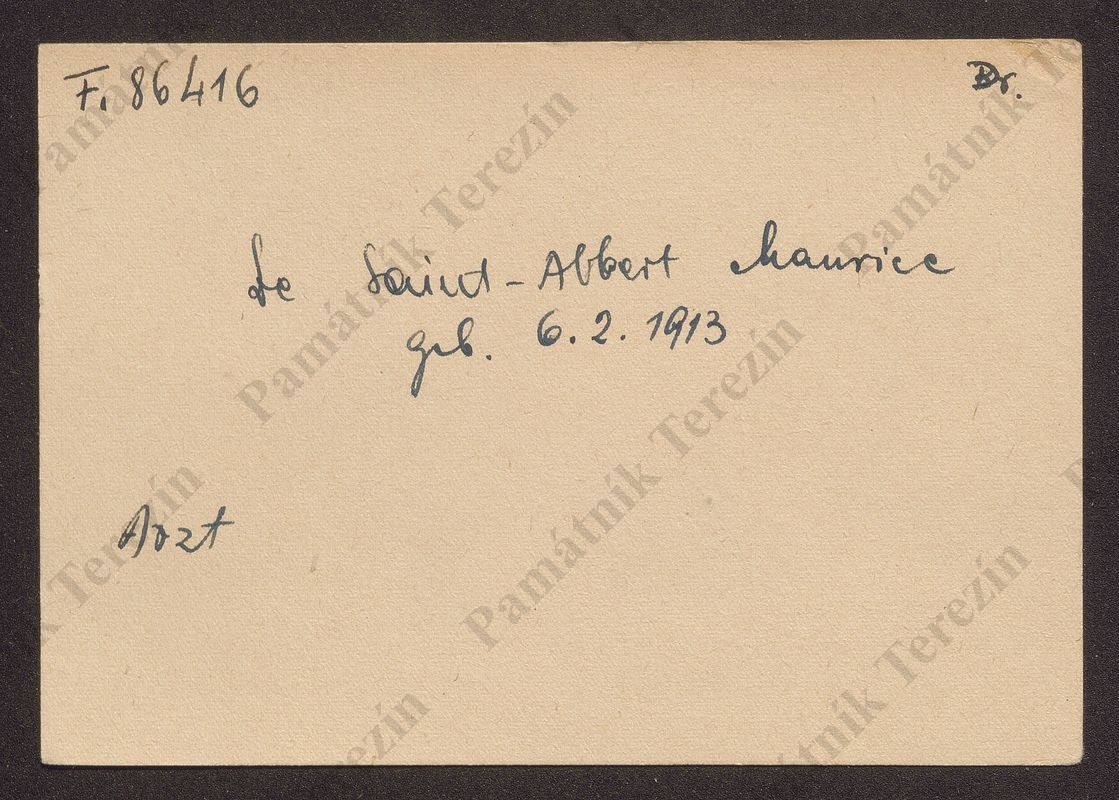 F. 86416
Dr.
De Saint-Abbert Maurice
geb. 6.2.1913
Arzt
Památník Terezín